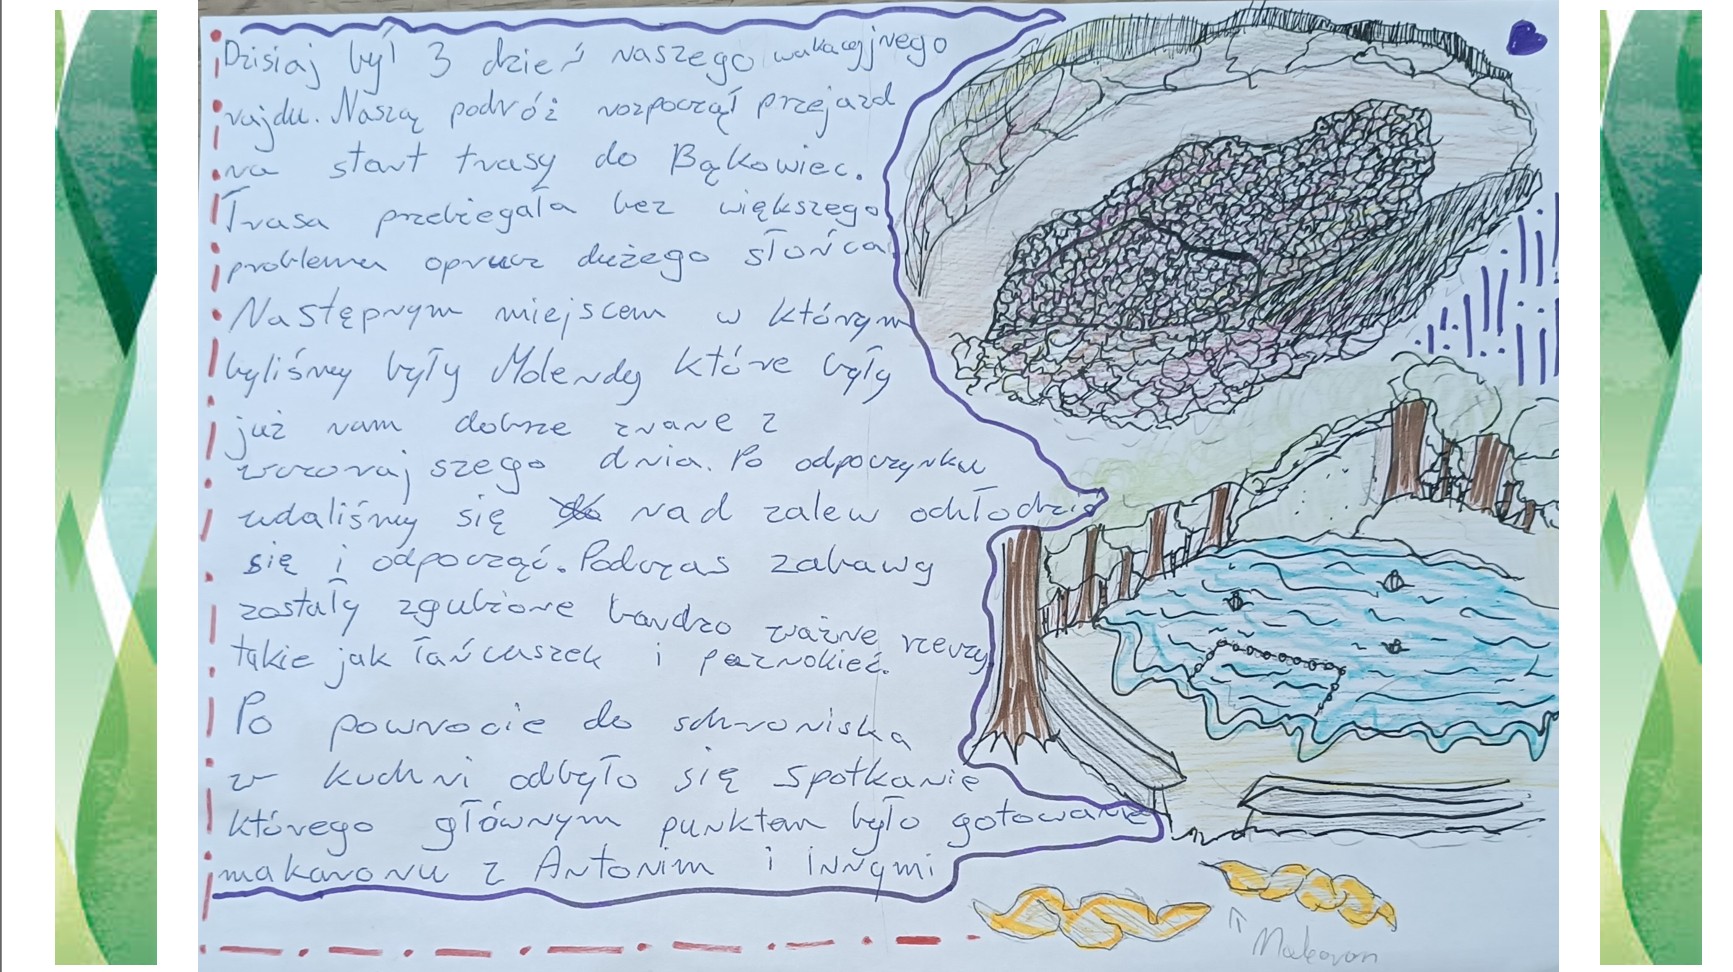 Dzisiaj był 3 dzień naszego wakacyjnego
rajdu. Naszą podróż rozpoczął przejazd
na start trasy do Bąkowiec.
Trasa przebiegała bez większego
problemu oprucz dużego słońca
Następnym miejscem w którym
byliśmy były Molendy które były
już nam dobrze znane z
wczorajszego dnia. Po odpoczynku
udaliśmy się nad zalew ochłodzić
się i odpocząć. Podczas zabawy
zostały zgubione bardzo ważne rzeczy
takie jak łańcuszek i paznokieć.
Po powrocie do schroniska
w kuchni odbyło się spotkanie
którego głównym punktem było gotowanie
makaronu z Antonim i innymi
Makaron